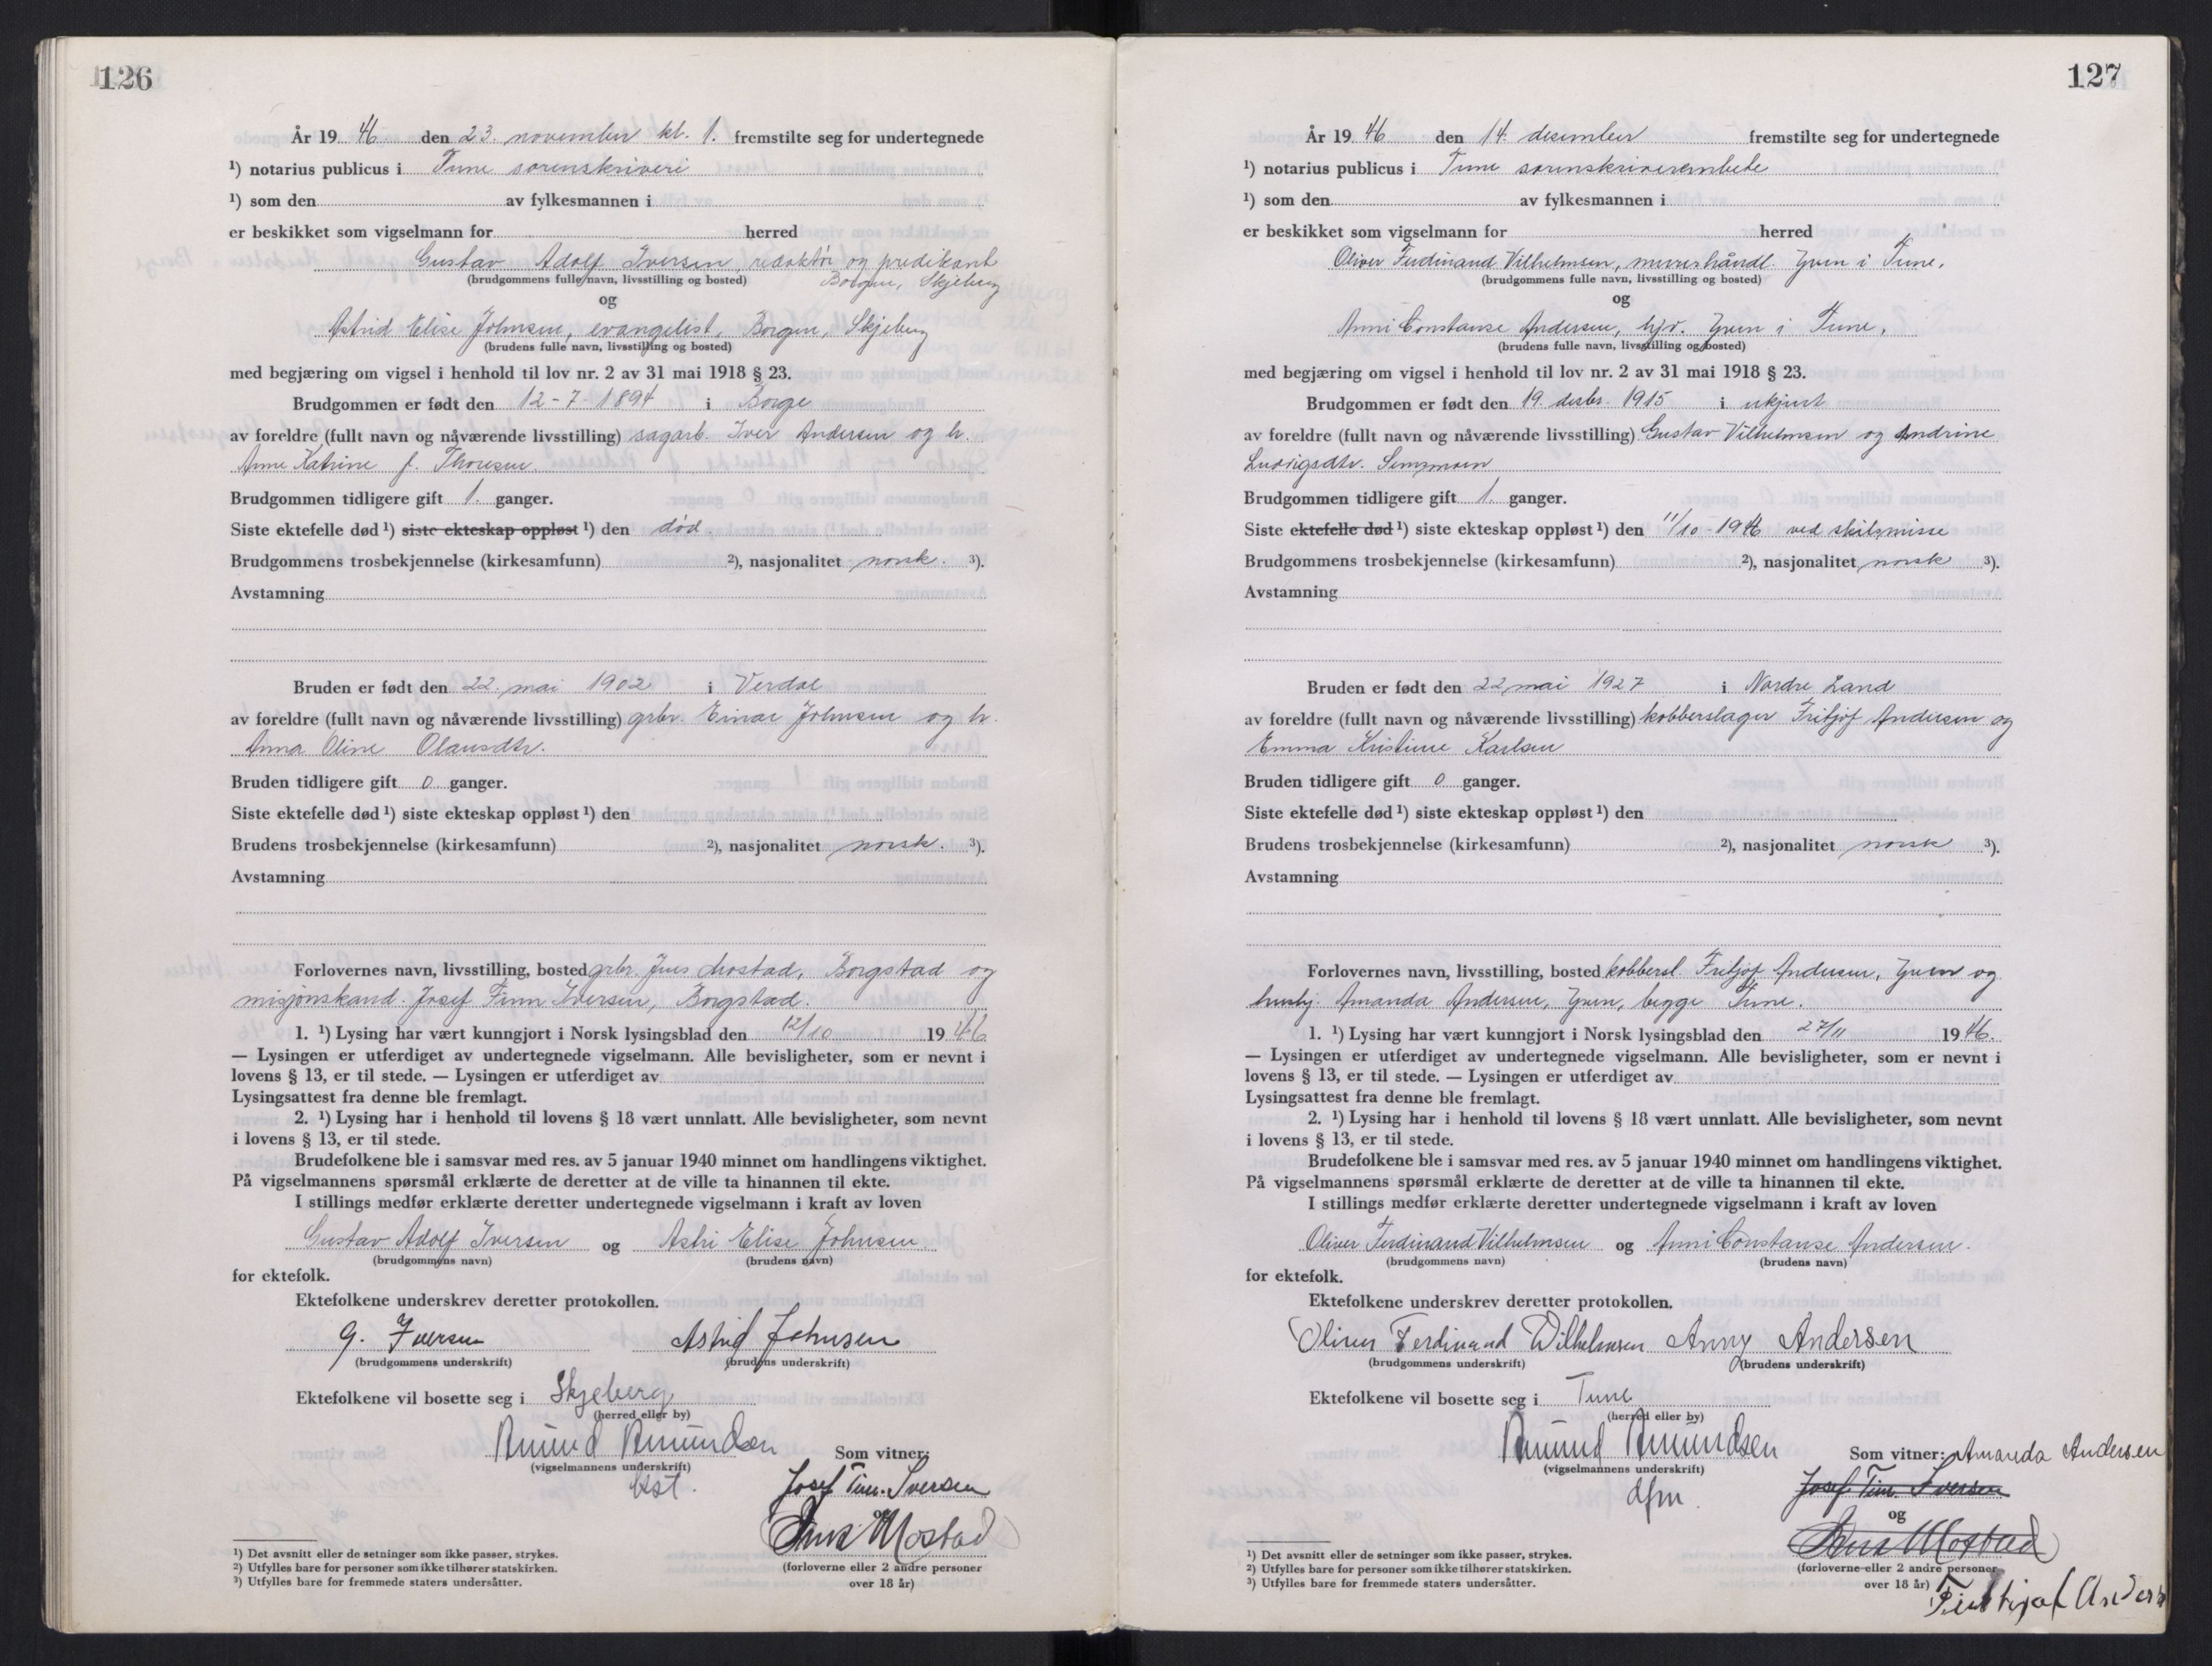 126
År 19 46 den 23. november kl. 1. fremstilte seg for undertegnede
¹) notarius publicus i Tune sorenskriveri
¹) som den av fylkesmannen i
er beskikket som vigselmann for herred
Gustav Adolf Iversen, redaktör og predikant
(brudgommens fulle navn, livsstilling og bosted) Borgen, Skjeberg
og
Astrid Elise Johnsen, evangelist, Borgen, Skjeberg
(brudens fulle navn, livsstilling og bosted)
med begjæring om vigsel i henhold til lov nr. 2 av 31 mai 1918 § 23.
Brudgommen er født den 12-7-1894 i Borge
av foreldre (fullt navn og nåværende livsstilling) sagarb. Iver Andersen og h.
Anne Katrine f. Thoresen
Brudgommen tidligere gift 1. ganger.
Siste ektefelle død ¹) siste ekteskap oppløst ¹) den död.
Brudgommens trosbekjennelse (kirkesamfunn) ²), nasjonalitet norsk. ³).
Avstamning
Bruden er født den 22. mai 1902 i Verdal
av foreldre (fullt navn og nåværende livsstilling) grbr. Einar Johnsen og h.
Anna Oline Olausdtr.
Bruden tidligere gift 0 ganger.
Siste ektefelle død ¹) siste ekteskap oppløst ¹) den
Brudens trosbekjennelse (kirkesamfunn) ²), nasjonalitet norsk. ³).
Avstamning
Forlovernes navn, livsstilling, bosted grbr. Jens Mostad, Borgstad og
misjonskand. Josef Finn Iversen, Borgstad.
1. ¹) Lysing har vært kunngjort i Norsk lysingsblad den 12/10 1946
— Lysingen er utferdiget av undertegnede vigselmann. Alle bevisligheter, som er nevnt i
lovens § 13, er til stede. — Lysingen er utferdiget av
Lysingsattest fra denne ble fremlagt.
2. ¹) Lysing har i henhold til lovens § 18 vært unnlatt. Alle bevisligheter, som nevnt
i lovens § 13, er til stede.
Brudefolkene ble i samsvar med res. av 5 januar 1940 minnet om handlingens viktighet.
På vigselmannens spørsmål erklærte de deretter at de ville ta hinannen til ekte.
I stillings medfør erklærte deretter undertegnede vigselmann i kraft av loven
Gustav Adolf Iversen og Astri Elise Johnsen
(brudgommens navn) (brudens navn)
for ektefolk.
Ektefolkene underskrev deretter protokollen.
G. Iversen Astrid Johnsen
(brudgommens underskrift) (brudens underskrift)
Ektefolkene vil bosette seg i Skjeberg
(herred eller by)
Amund Amundsen Som vitner:
(vigselmannens underskrift)
kst. Josef Finn Iversen
og
Jens Mostad
(forloverne eller 2 andre personer
over 18 år)
¹) Det avsnitt eller de setninger som ikke passer, strykes.
²) Utfylles bare for personer som ikke tilhører statskirken.
³) Utfylles bare for fremmede staters undersåtter.
127
År 19 46 den 14. desember fremstilte seg for undertegnede
¹) notarius publicus i Tune sorenskriverembete
¹) som den av fylkesmannen i
er beskikket som vigselmann for herred
Oliver Ferdinand Vilhelmsen, murerhåndl. Yven i Tune,
(brudgommens fulle navn, livsstilling og bosted)
og
Anni Constanse Andersen, hjv. Yven i Tune,
(brudens fulle navn, livsstilling og bosted)
med begjæring om vigsel i henhold til lov nr. 2 av 31 mai 1918 § 23.
Brudgommen er født den 19. desbr. 1915 i ukjent
av foreldre (fullt navn og nåværende livsstilling) Gustav Vilhelmsen og Andrine
Ludvigsdtr.
Brudgommen tidligere gift 1. ganger.
Siste ektefelle død ¹) siste ekteskap oppløst ¹) den 11/10-1946 ved skilsmisse
Brudgommens trosbekjennelse (kirkesamfunn) ²), nasjonalitet norsk ³).
Avstamning
Bruden er født den 22 mai 1927 i Nordre Land
av foreldre (fullt navn og nåværende livsstilling) kobberslager Fritjof Andersen og
Emma Kristine Karlsen
Bruden tidligere gift 0 ganger.
Siste ektefelle død ¹) siste ekteskap oppløst ¹) den
Brudens trosbekjennelse (kirkesamfunn) ²), nasjonalitet norsk ³).
Avstamning
Forlovernes navn, livsstilling, bosted kobbersl. Fritjof Andersen, Yven og
hushj. Amanda Andersen, Yven, begge Tune.
1. ¹) Lysing har vært kunngjort i Norsk lysingsblad den 27/11 1946.
— Lysingen er utferdiget av undertegnede vigselmann. Alle bevisligheter, som er nevnt i
lovens § 13, er til stede. — Lysingen er utferdiget av
Lysingsattest fra denne ble fremlagt.
2. ¹) Lysing har i henhold til lovens § 18 vært unnlatt. Alle bevisligheter, som nevnt
i lovens § 13, er til stede.
Brudefolkene ble i samsvar med res. av 5 januar 1940 minnet om handlingens viktighet.
På vigselmannens spørsmål erklærte de deretter at de ville ta hinannen til ekte.
I stillings medfør erklærte deretter undertegnede vigselmann i kraft av loven
Oliver Ferdinand Vilhelmsen og Anni Constanse Andersen.
(brudgommens navn) (brudens navn)
for ektefolk.
Ektefolkene underskrev deretter protokollen.
Oliver Ferdinand Wilhelmsen Anny Andersen
(brudgommens underskrift) (brudens underskrift)
Ektefolkene vil bosette seg i Tune
(herred eller by)
Amund Amundsen Som vitner: Amanda Andersen
(vigselmannens underskrift)
dfm. Josef Finn Iversen
og
Jens Mostad
(forloverne eller 2 andre personer
over 18 år) Andersen
¹) Det avsnitt eller de setninger som ikke passer, strykes.
²) Utfylles bare for personer som ikke tilhører statskirken.
³) Utfylles bare for fremmede staters undersåtter.